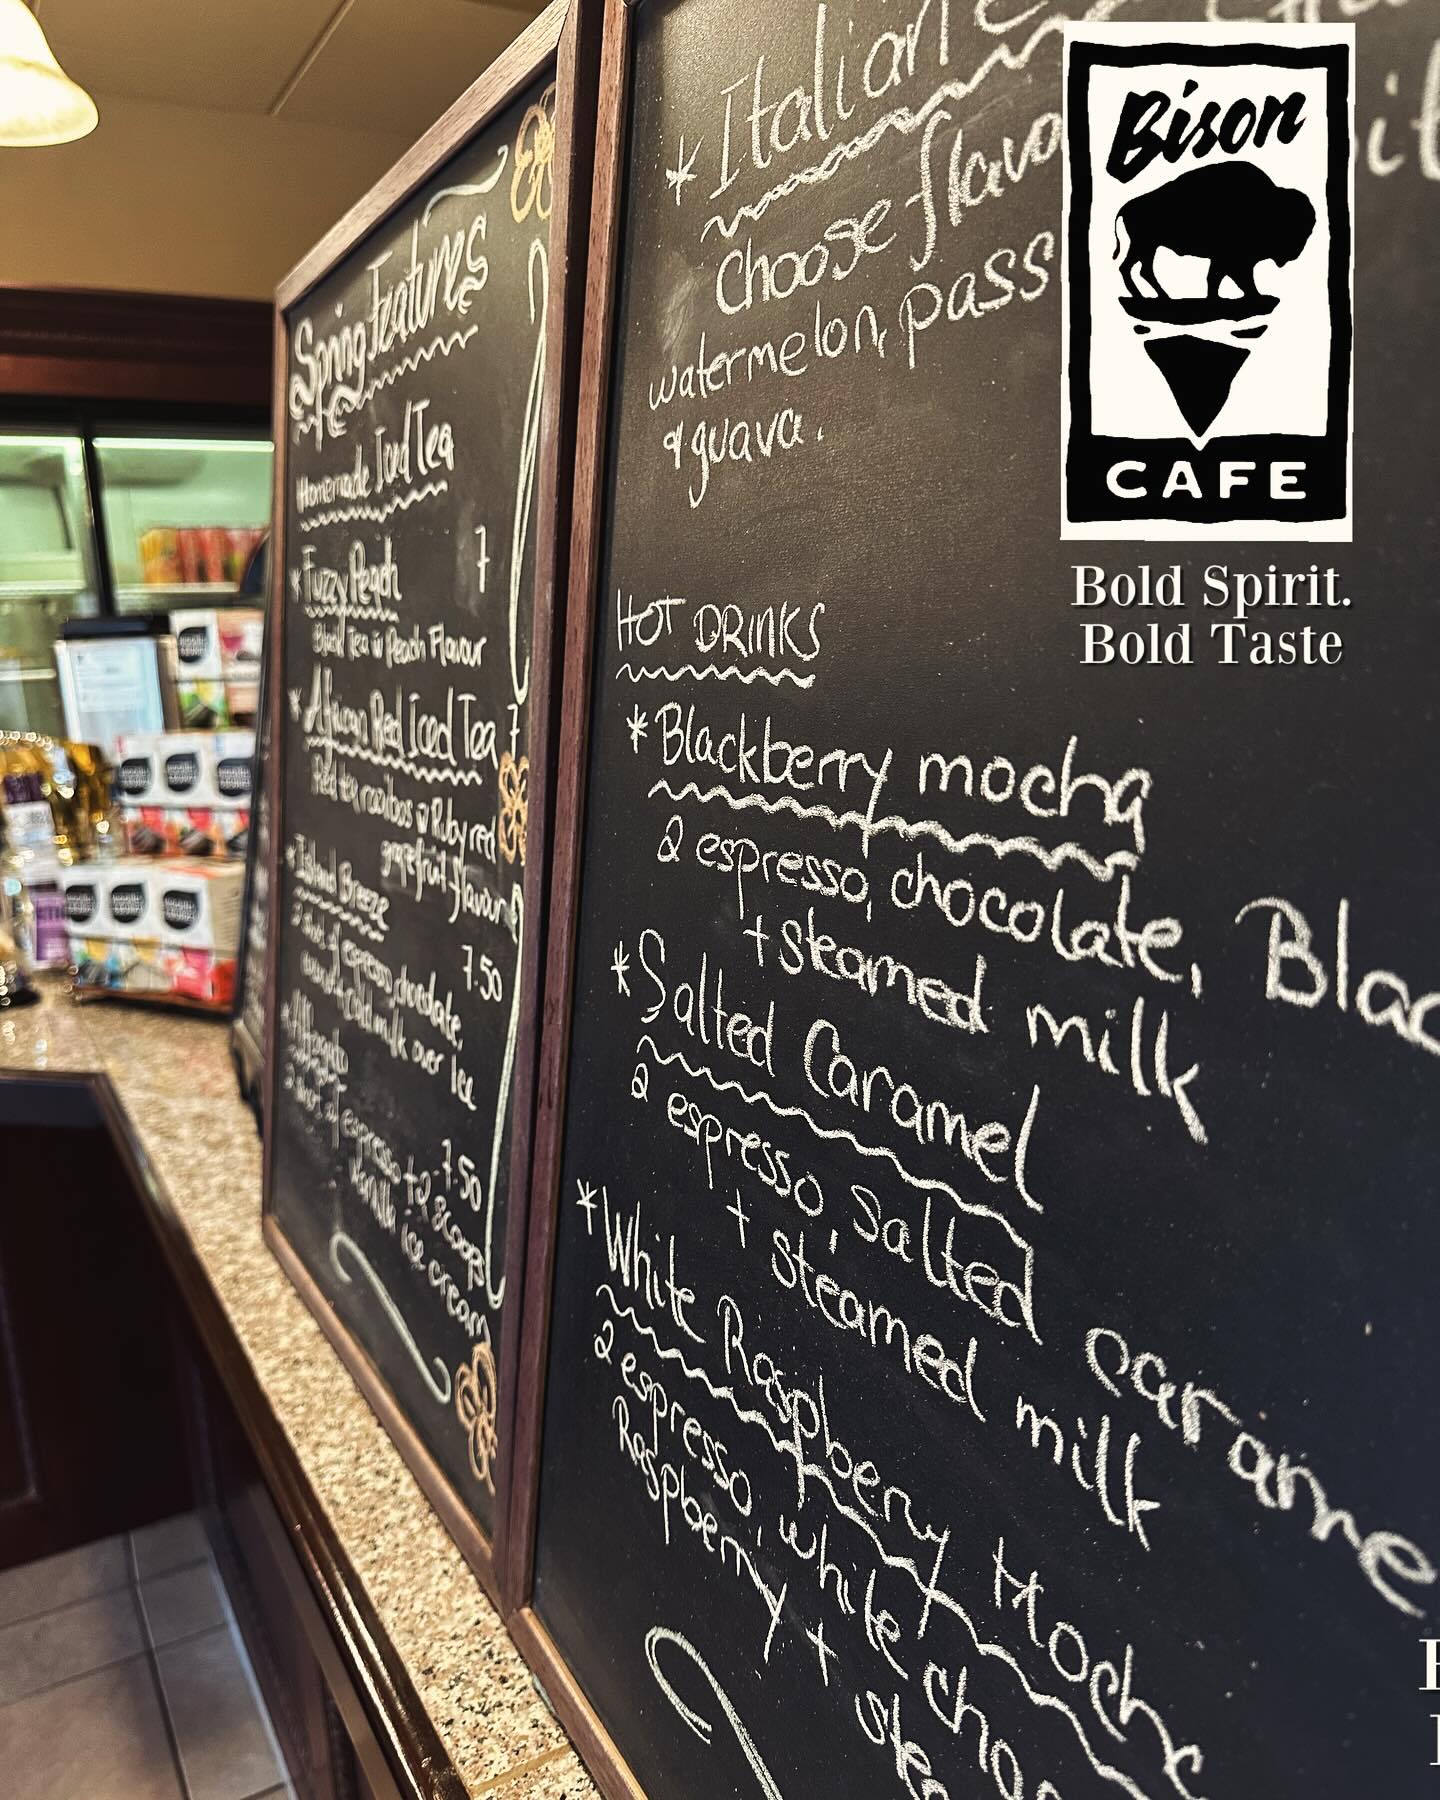 Spring Features
Homemade Iced Tea
* Fuzzy Peach 7
Black Tea w Peach Flavour
* African Red Iced Tea 7
Red tea, rooibos w Ruby red
grapefruit flavour
* Island Breeze
7.50
2 shots of espresso, chocolate,
+ cold milk over Ice
* Affogato
7.50
2 shots of espresso + 2 scoops
Vanilla ice cream
* Italian
Choose flavo
watermelon, pass
& guava.
HOT DRINKS
* Blackberry mocha
2 espresso, chocolate, Blac
+ steamed milk
* Salted Caramel
2 espresso, salted carame
+ steamed milk
* White Raspberry Moch
2 espresso, white cho
Raspberry + ste
Bison
CAFE
Bold Spirit.
Bold Taste